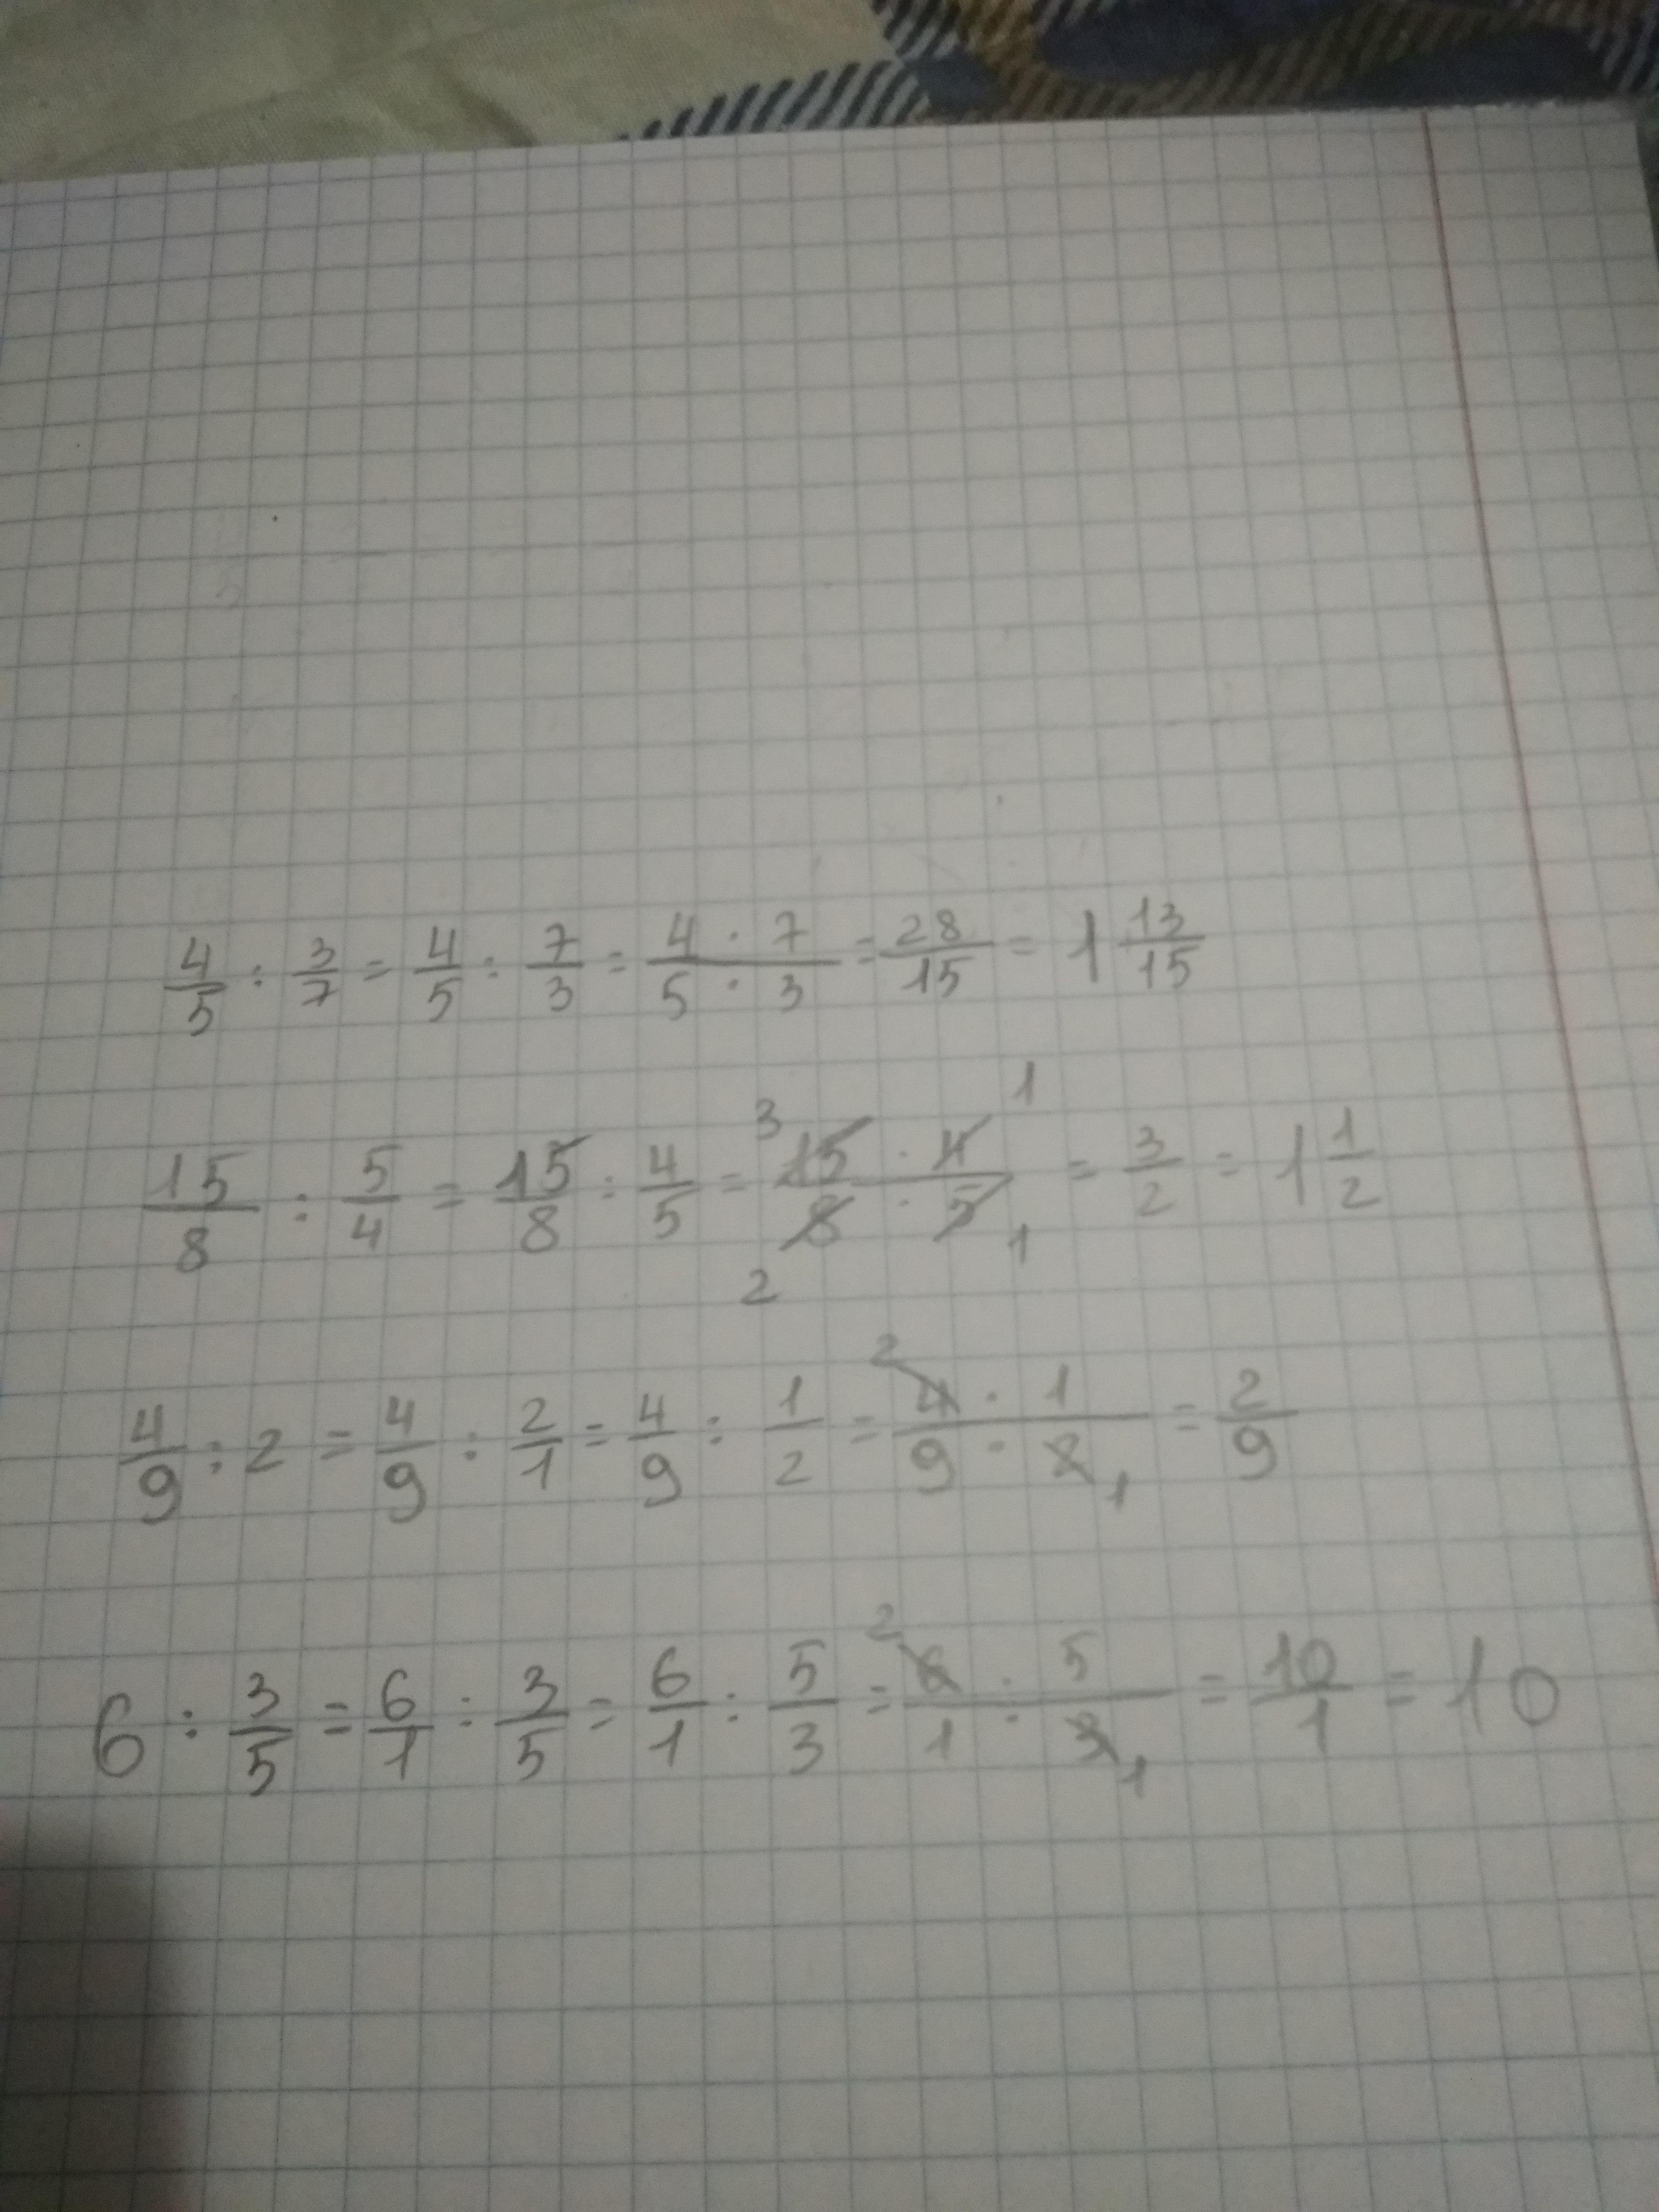 4/5 : 3/7 = 4/5 : 7/3 = 4 · 7 / 5 · 3 = 28/15 = 1 13/15
15/8 : 5/4 = 15/8 : 4/5 = 3 15 · 4 1 / 2 8 · 5 1 = 3/2 = 1 1/2
4/9 : 2 = 4/9 : 2/1 = 4/9 : 1/2 = 2 4 · 1 / 9 · 2 1 = 2/9
6 : 3/5 = 6/1 : 3/5 = 6/1 : 5/3 = 2 6 : 5 / 1 : 3 1 = 10/1 = 10